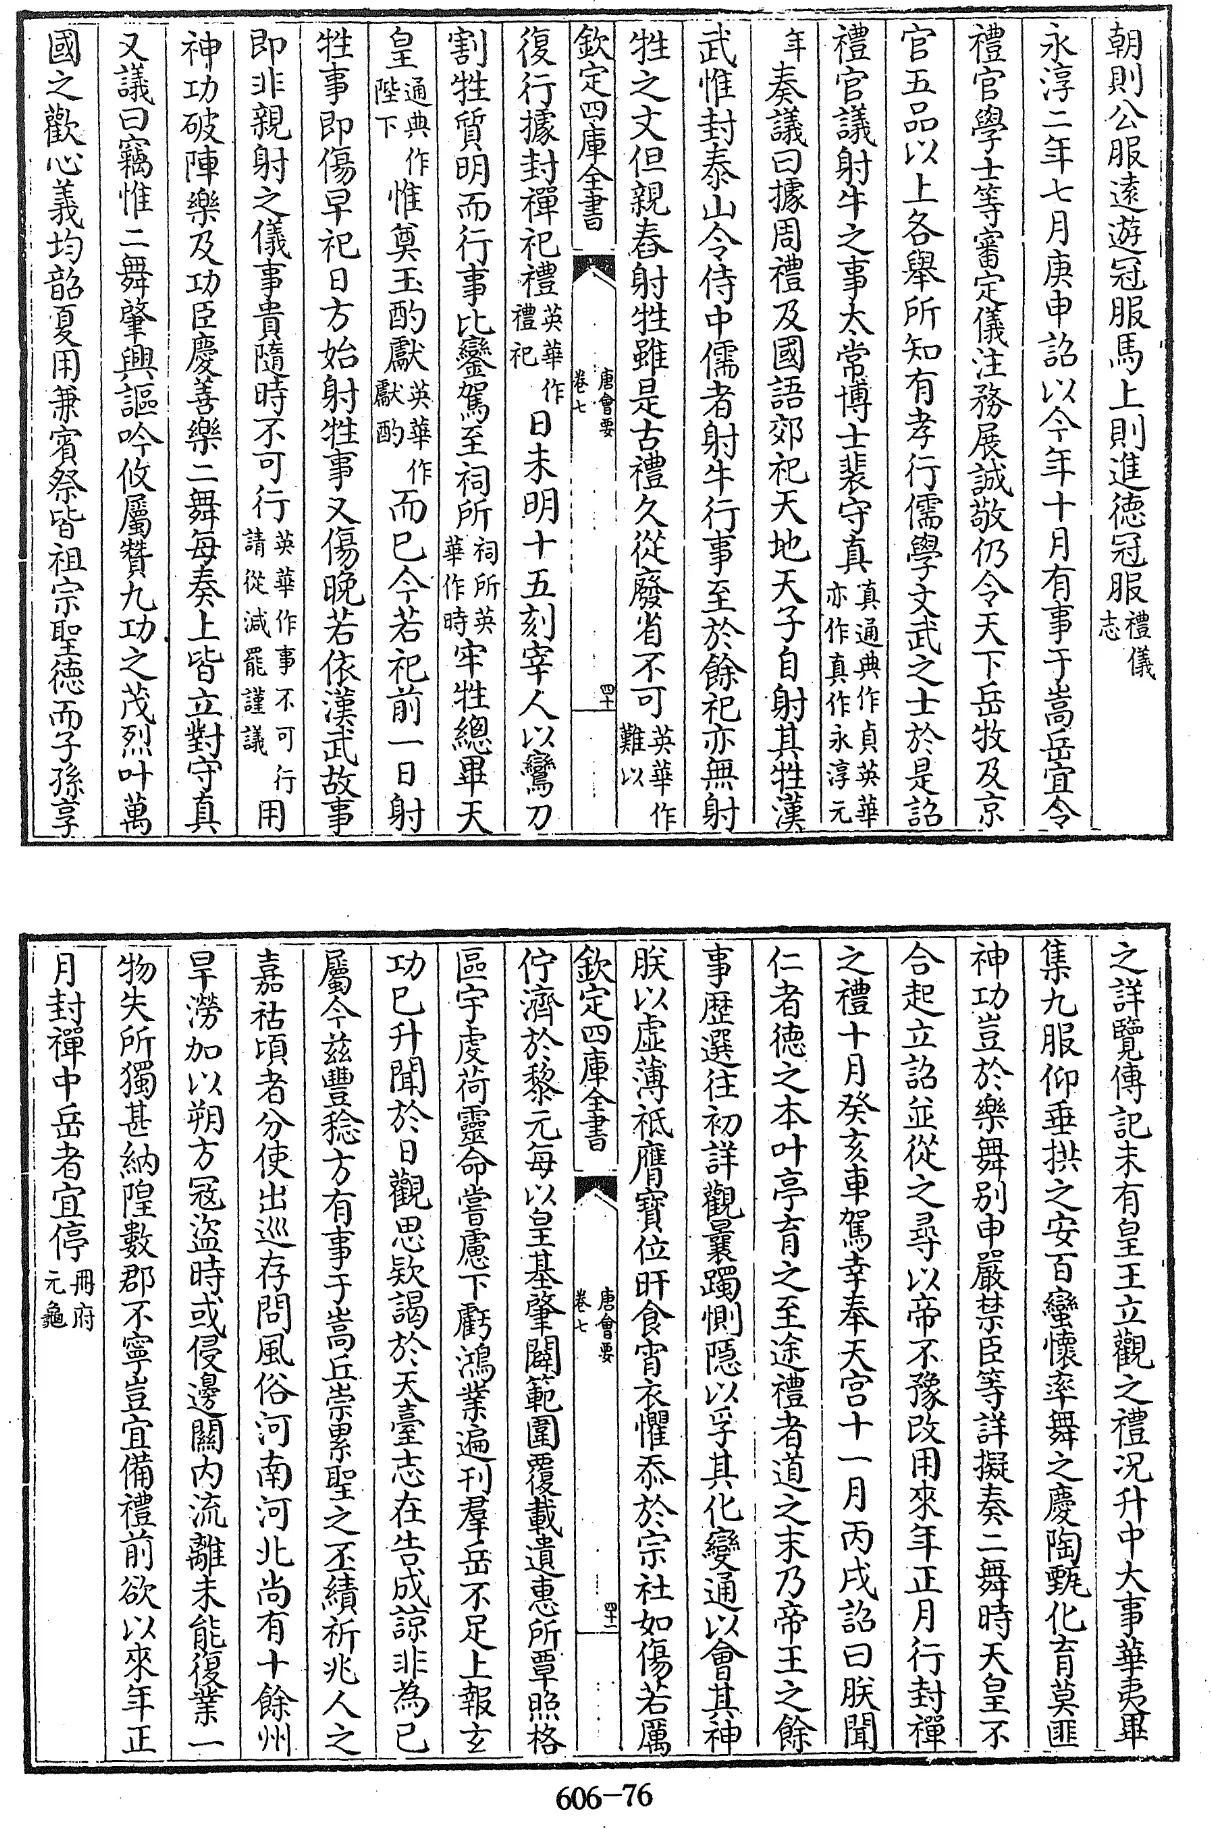 朝則公服逺遊冠服馬上則進徳冠服禮儀志
永淳二年七月庚申詔以今年十月有事于嵩岳宜令
禮官學士等審定儀注務展誠敬仍令天下岳牧及京
官五品以上各舉所知有孝行儒學文武之士於是詔
禮官議射牛之事太常博士裴守真真通典作貞英華亦作真作永淳元
年奏議曰據周禮及國語郊祀天地天子自射其牲漢
武惟封泰山令侍中儒者射牛行事至於餘祀亦無射
牲之文但親舂射牲雖是古禮久從廢省不可英華作難以
欽定四庫全書
唐會要
卷七
四十
復行據封禪祀禮英華作禮祀日未明十五刻宰人以鸞刀
割牲質明而行事比鑾駕至祠所祠所英華作時牢牲總畢天
皇通典作陛下惟奠玉酌獻英華作獻酌而已今若祀前一日射
牲事即傷早祀日方始射牲事又傷晚若依漢武故事
即非親射之儀事貴隨時不可行英華作事不可行請從減罷謹議用
神功破陣樂及功臣慶善樂二舞每奏上皆立對守真
又議曰竊惟二舞肇興謳吟攸屬贊九功之茂烈叶萬
國之歡心義均韶夏用兼賓祭皆祖宗聖徳而子孫享
之詳覽傳記未有皇王立觀之禮况升中大事華夷畢
集九服仰垂拱之安百蠻懷率舞之慶陶甄化育莫匪
神功豈於樂舞别申嚴禁臣等詳擬奏二舞時天皇不
合起立詔並從之尋以帝不豫改用來年正月行封禪
之禮十月癸亥車駕幸奉天宫十一月丙戌詔曰朕聞
仁者徳之本叶亭育之至途禮者道之末乃帝王之餘
事歴選往初詳觀曩躅惻隠以孚其化變通以會其神
朕以虚薄祗膺寶位旰食宵衣懼忝於宗社如傷若厲
欽定四庫全書
唐會要
卷七
四十一
佇濟於黎元每以皇基肇闢範圍覆載遺惠所覃照格
區宇虔荷靈命嘗慮下虧鴻業遍刋羣岳不足上報玄
功已升聞於日觀思欵謁於天臺志在告成諒非為己
屬今兹豐稔方有事于嵩丘崇累聖之丕績祈兆人之
嘉祜頃者分使出廵存問風俗河南河北尚有十餘州
旱澇加以朔方冦盗時或侵邊關内流離未能復業一
物失所獨甚納隍數郡不寧豈宜備禮前欲以來年正
月封禪中岳者宜停冊府元龜
606-76